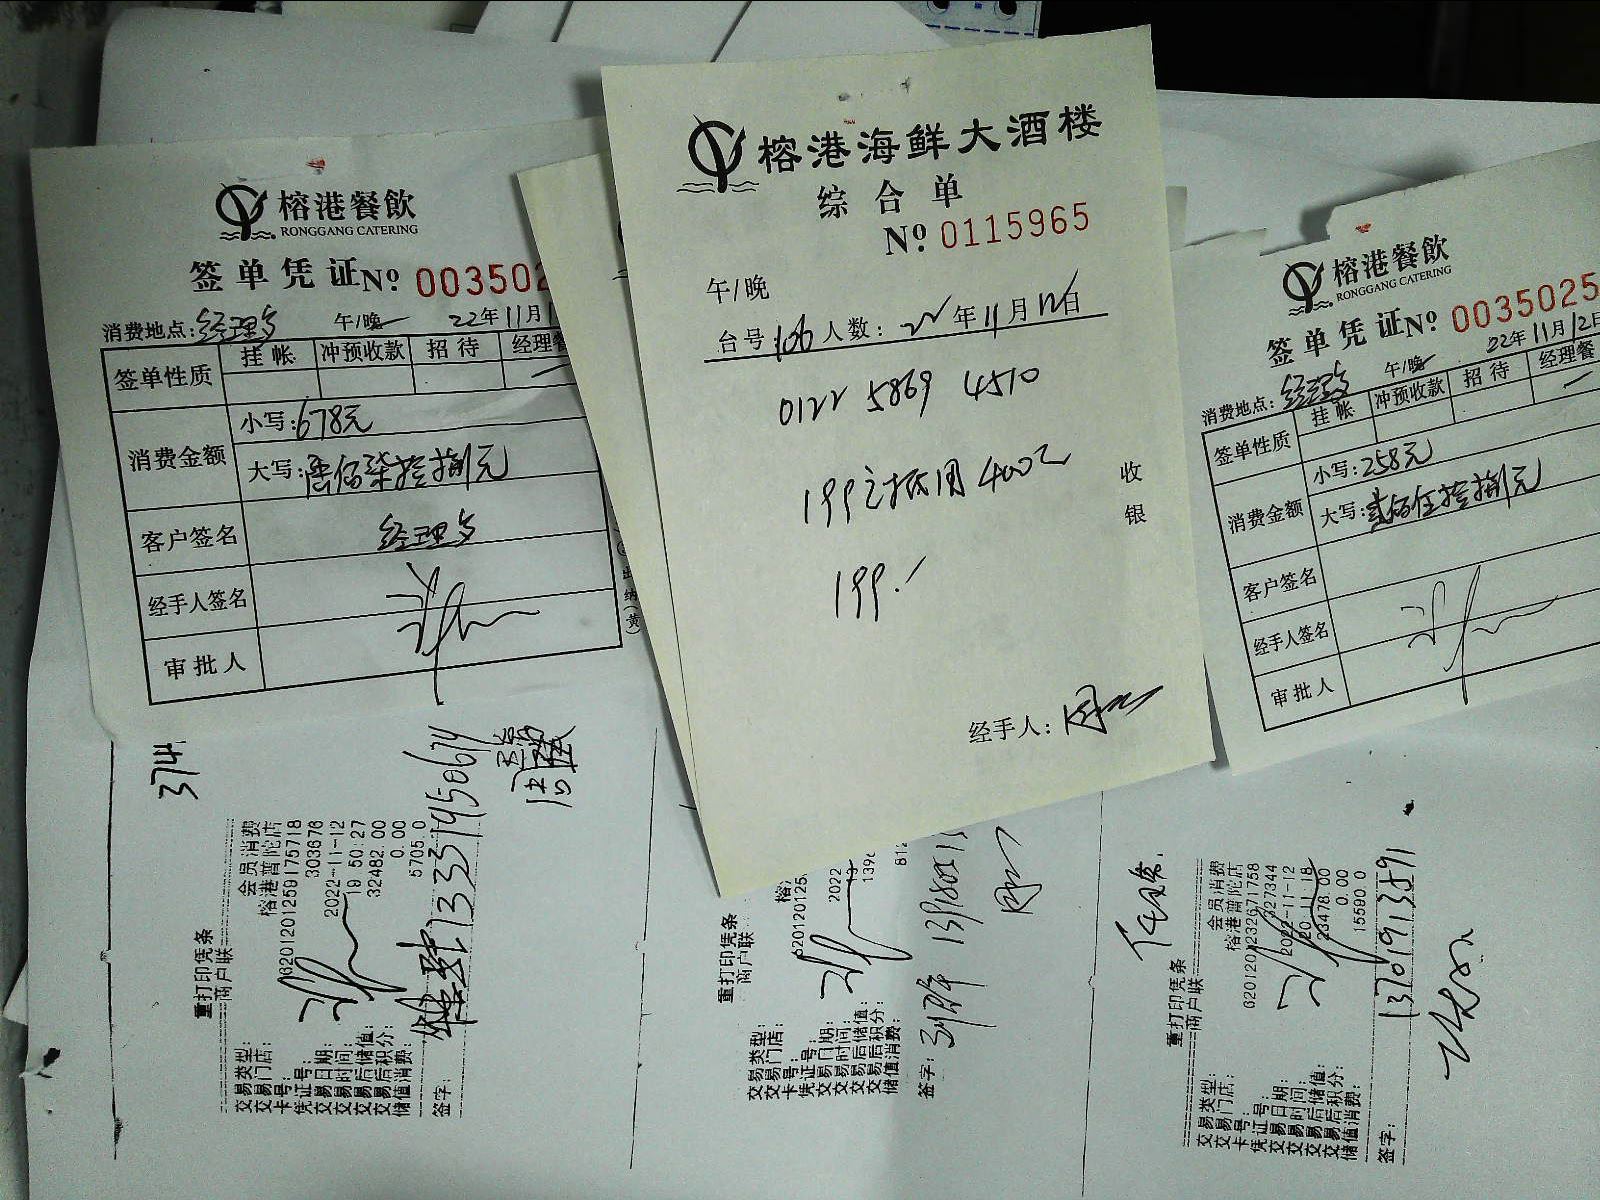 榕港餐飲
RONGGANG CATERING
签单凭证 Nº 003502
消费地点：经理乡 午/晚 22年11月1
签单性质 挂帐 冲预收款 招待 经理餐
消费金额 小写：678元
大写：陆佰柒拾捌元
客户签名
经手人签名
审批人
榕港海鲜大酒楼
综合单
Nº 0115965
午/晚
台号：106 人数： 22年11月12日
0122 5869 4510
199之抵用400元
199.
收银
经手人：
榕港餐飲
RONGGANG CATERING
签单凭证 Nº 0035025
消费地点： 午/晚 22年11月12日
签单性质 挂帐 冲预收款 招待 经理餐
消费金额 小写：258元
大写：贰佰伍拾捌元
客户签名
经手人签名
审批人
374
重打印凭条
商户联
交易类型： 会员消费
交易门店： 榕港普陀店
卡号： 6201201259175718
凭证号： 303676
交易日期： 2022-11-12
交易时间： 19:50:27
交易后储值： 32482.00
交易后积分： 0.00
储值消费： 5705.0
签字：
13371950674
重打印凭条
商户联
交易类型：
交易门店： 榕
卡号： 620120125
凭证号：
交易日期： 2022
交易时间：
交易后储值： 139
交易后积分：
储值消费： 812
签字：
重打印凭条
商户联
交易类型： 会员消费
交易门店： 榕港普陀店
卡号： 6201201232671758
凭证号： 327344
交易日期： 2022-11-12
交易时间： 20:11:18
交易后储值： 23478.00
交易后积分： 0.00
储值消费： 15590.0
签字：
13701913591